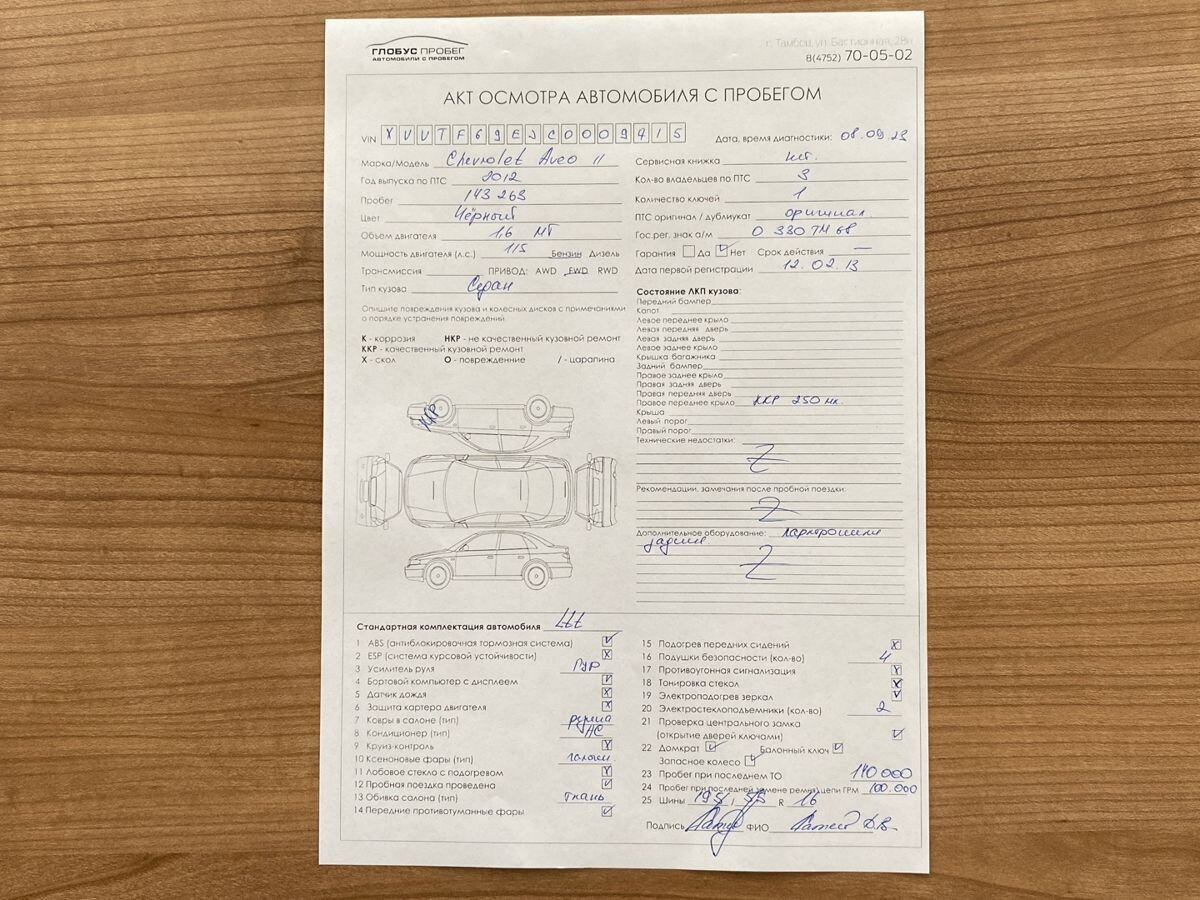 ГЛОБУС ПРОБЕГ
АВТОМОБИЛИ С ПРОБЕГОМ
г. Тамбов, ул. Бастионная, 28и
8(4752) 70-05-02
АКТ ОСМОТРА АВТОМОБИЛЯ С ПРОБЕГОМ
VIN XUUTF69EJC0009415
Дата, время диагностики: 08.09.23
Марка/Модель Chevrolet Aveo II
Год выпуска по ПТС 2012
Пробег 143 263
Цвет Чёрный
Объем двигателя 1,6 МТ
Мощность двигателя (л.с.) 115 Бензин Дизель
Трансмиссия ПРИВОД: AWD FWD RWD
Тип кузова Седан
Сервисная книжка нет.
Кол-во владельцев по ПТС 3
Количество ключей 1
ПТС оригинал / дубликат оригинал
Гос.рег. знак а/м О 330 ТМ 68
Гарантия Да Нет Срок действия —
Дата первой регистрации 12.02.13
Опишите повреждения кузова и колесных дисков с примечаниями
о порядке устранения повреждений.
К - коррозия НКР - не качественный кузовной ремонт
ККР - качественный кузовной ремонт
Х - скол О - повреждение / - царапина
ККР
Состояние ЛКП кузова:
Передний бампер
Капот
Левое переднее крыло
Левая передняя дверь
Левая задняя дверь
Левое заднее крыло
Крышка багажника
Задний бампер
Правое заднее крыло
Правая задняя дверь
Правая передняя дверь
Правое переднее крыло ККР 250 мк.
Крыша
Левый порог
Правый порог
Технические недостатки:
Z
Рекомендации, замечания после пробной поездки:
Z
Дополнительное оборудование: парктроники
задние.
Z
Стандартная комплектация автомобиля Ltt
1 ABS (антиблокировочная тормозная система)
2 ESP (система курсовой устойчивости)
3 Усилитель руля ГУР
4 Бортовой компьютер с дисплеем
5 Датчик дождя
6 Защита картера двигателя
7 Ковры в салоне (тип) резина
8 Кондиционер (тип) АС
9 Круиз-контроль
10 Ксеноновые фары (тип) галоген.
11 Лобовое стекло с подогревом
12 Пробная поездка проведена
13 Обивка салона (тип) ткань
14 Передние противотуманные фары
15 Подогрев передних сидений
16 Подушки безопасности (кол-во) 4
17 Противоугонная сигнализация
18 Тонировка стекол
19 Электроподогрев зеркал
20 Электростеклоподъемники (кол-во) 2
21 Проверка центрального замка
(открытие дверей ключами)
22 Домкрат Балонный ключ
Запасное колесо
23 Пробег при последнем ТО 140 000
24 Пробег при последней замене ремня/цепи ГРМ 100.000
25 Шины 195 / 55 R 16
Подпись ФИО